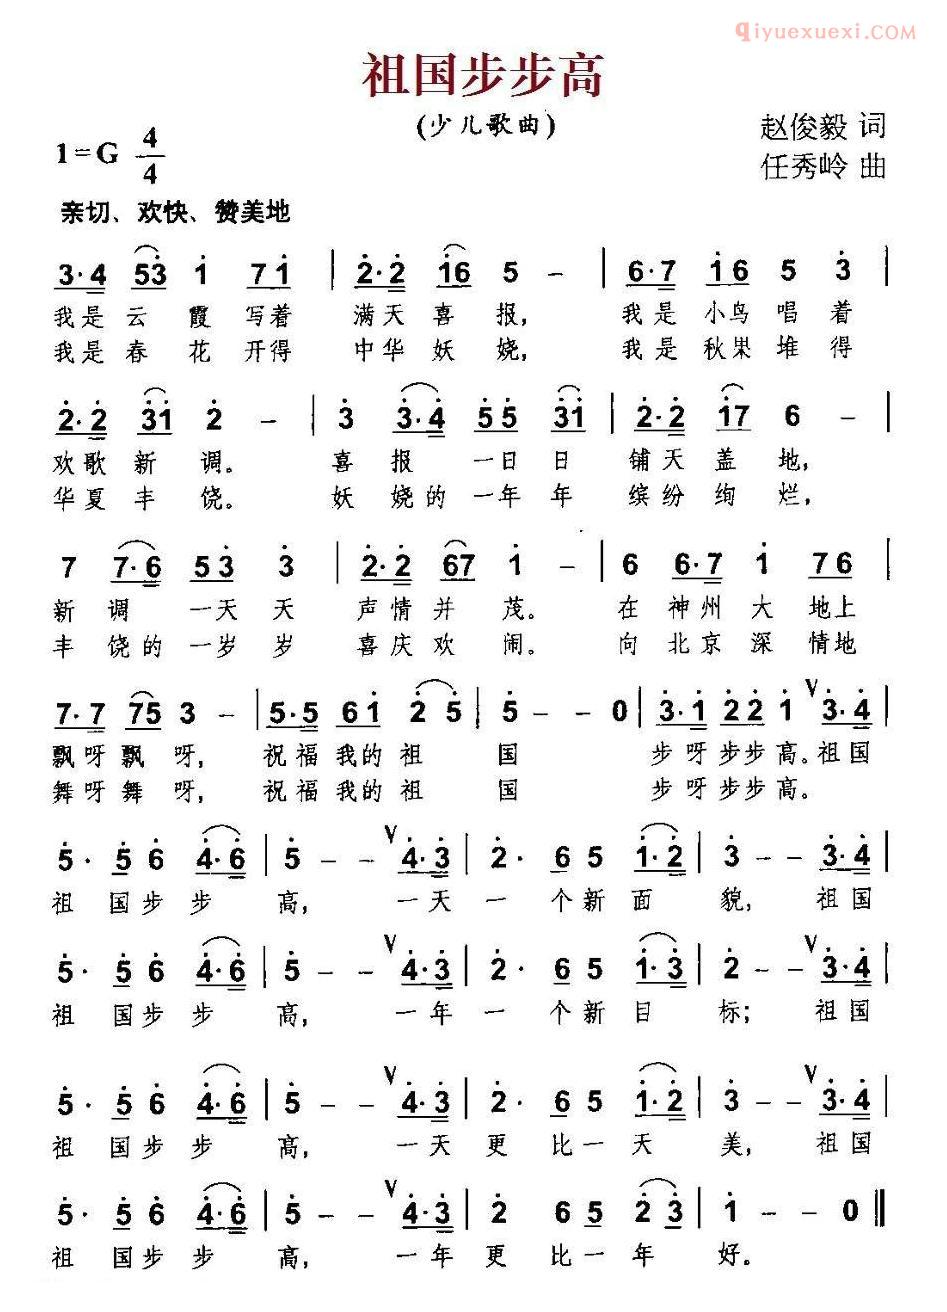 qiyuexuexi.COM
祖国步步高
(少儿歌曲)
赵俊毅 词
1=G 4/4
任秀岭 曲
亲切、欢快、赞美地
3·4 53 1 71 | 2·2 16 5 - | 6·7 16 5 3 |
我是云霞写着 满天喜报, 我是小鸟唱着
我是春花开得 中华妖娆, 我是秋果堆得
2·2 31 2 - | 3 3·4 55 31 | 2·2 17 6 - |
欢歌新调。 喜报 一日日 铺天盖地,
华夏丰饶。 妖娆的一年年 缤纷绚烂,
7 7·6 53 3 | 2·2 67 1 - | 6 6·7 1 76 |
新调 一天天 声情并茂。 在神州大地上
丰饶的一岁岁 喜庆欢闹。 向北京深情地
7·7 75 3 - | 5·5 61 2 5 | 5 - - 0 | 3·1 22 1 V 3·4 |
飘呀飘呀, 祝福我的祖 国 步呀步步高。祖国
舞呀舞呀, 祝福我的祖 国 步呀步步高。
5· 5 6 4·6 | 5 - - V 4·3 | 2· 6 5 1·2 | 3 - - 3·4 |
祖 国步步 高, 一天一 个新面 貌, 祖国
5· 5 6 4·6 | 5 - - V 4·3 | 2· 6 5 1·3 | 2 - - V 3·4 |
祖 国步步 高, 一年一 个新目 标; 祖国
5· 5 6 4·6 | 5 - - V 4·3 | 2· 6 5 1·2 | 3 - - V 3·4 |
祖 国步步 高, 一天更 比一天 美, 祖国
5· 5 6 4·6 | 5 - - V 4·3 | 2 6 5 2 3 | 1 - - 0 ‖
祖 国步步 高, 一年更 比一年 好。